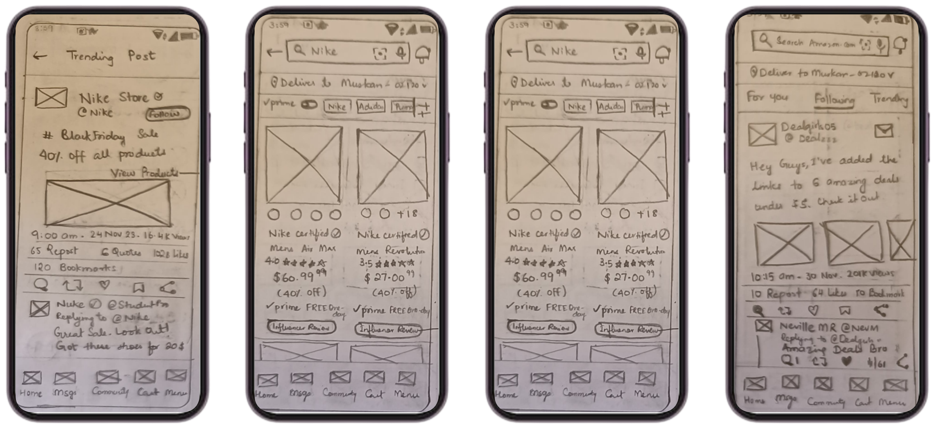 3:09
← Trending Post
Nike Store
@Nike
Follow
# BlackFriday Sale
40% off all products
View Products
9:00 am - 24 Nov 23 - 36.4K Views
65 Repost 6 Quotes Likes
120 Bookmarks
Nuke @StudntPro
Replying to @Nike
Great Sale. Look out!
Got these shoes for 20$
Home Msgs Community Cart Menu
3:09
← Nike
Deliver to Muskan - 02130 v
✓prime Nike Adidas Puma
+18
Nike Certified
Mens Air Max
4.0 ★★★★☆
$60.99
(40% off)
✓prime FREE One-day
Influencer Review
Nike Certified
Mens Revolution
3.5
$27.00
(40% off)
✓prime FREE One-day
Influencer Review
Home Msgs Community Cart Menu
3:09
← Nike
Deliver to Muskan - 02130 v
✓prime Nike Adidas Puma
+18
Nike Certified
Mens Air Max
4.0 ★★★★☆
$60.99
(40% off)
✓prime FREE One-day
Influencer Review
Nike Certified
Mens Revolution
3.5
$27.00
(40% off)
✓prime FREE One-day
Influencer Review
Home Msgs Community Cart Menu
Search Amazon.com
Deliver to Muskan - 02130 v
For you Following Trending
Dealgirl05
Hey Guys, I've added the
links to 6 amazing deals
under $5. Check it out
10:15 am - 30 Nov. Views
10 Repost 62 Likes 70 Bookmark
Neville MR @NevM
Replying to @Dealgirl
Amazing Deal Bro
Home Msgs Community Cart Menu